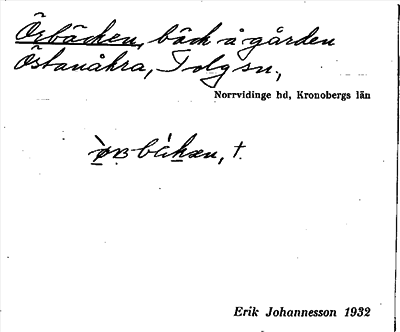 Örbäcken, bäck å gården
Östanåkra, Tolg sn.,
Norrvidinge hd, Kronobergs län
Erik Johannesson 1932